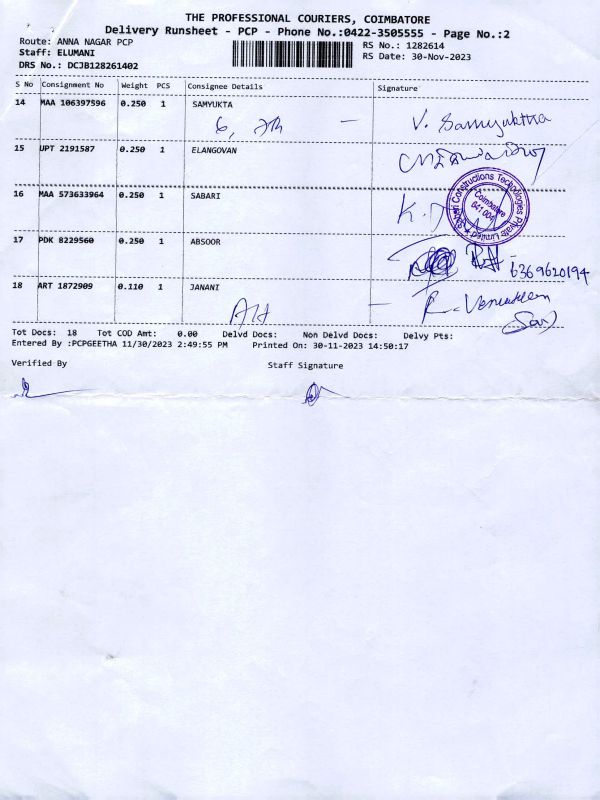 THE PROFESSIONAL COURIERS, COIMBATORE
Delivery Runsheet - PCP - Phone No.:0422-3505555 - Page No.:2
Route: ANNA NAGAR PCP RS No.: 1282614
Staff: ELUMANI RS Date: 30-Nov-2023
DRS No.: DCJB128261402
S No Consignment No Weight PCS Consignee Details Signature
14 MAA 106397596 0.250 1 SAMYUKTA
V. Samyuktha
15 UPT 2191587 0.250 1 ELANGOVAN
16 MAA 573633964 0.250 1 SABARI
Constructions Technologies Private Limited
Coimbatore
641 004
17 PDK 8229560 0.250 1 ABSOOR
6369620194
18 ART 1872909 0.110 1 JANANI
Tot Docs: 18 Tot COD Amt: 0.00 Delvd Docs: Non Delvd Docs: Delvy Pts:
Entered By :PCPGEETHA 11/30/2023 2:49:55 PM Printed On: 30-11-2023 14:50:17
Verified By Staff Signature